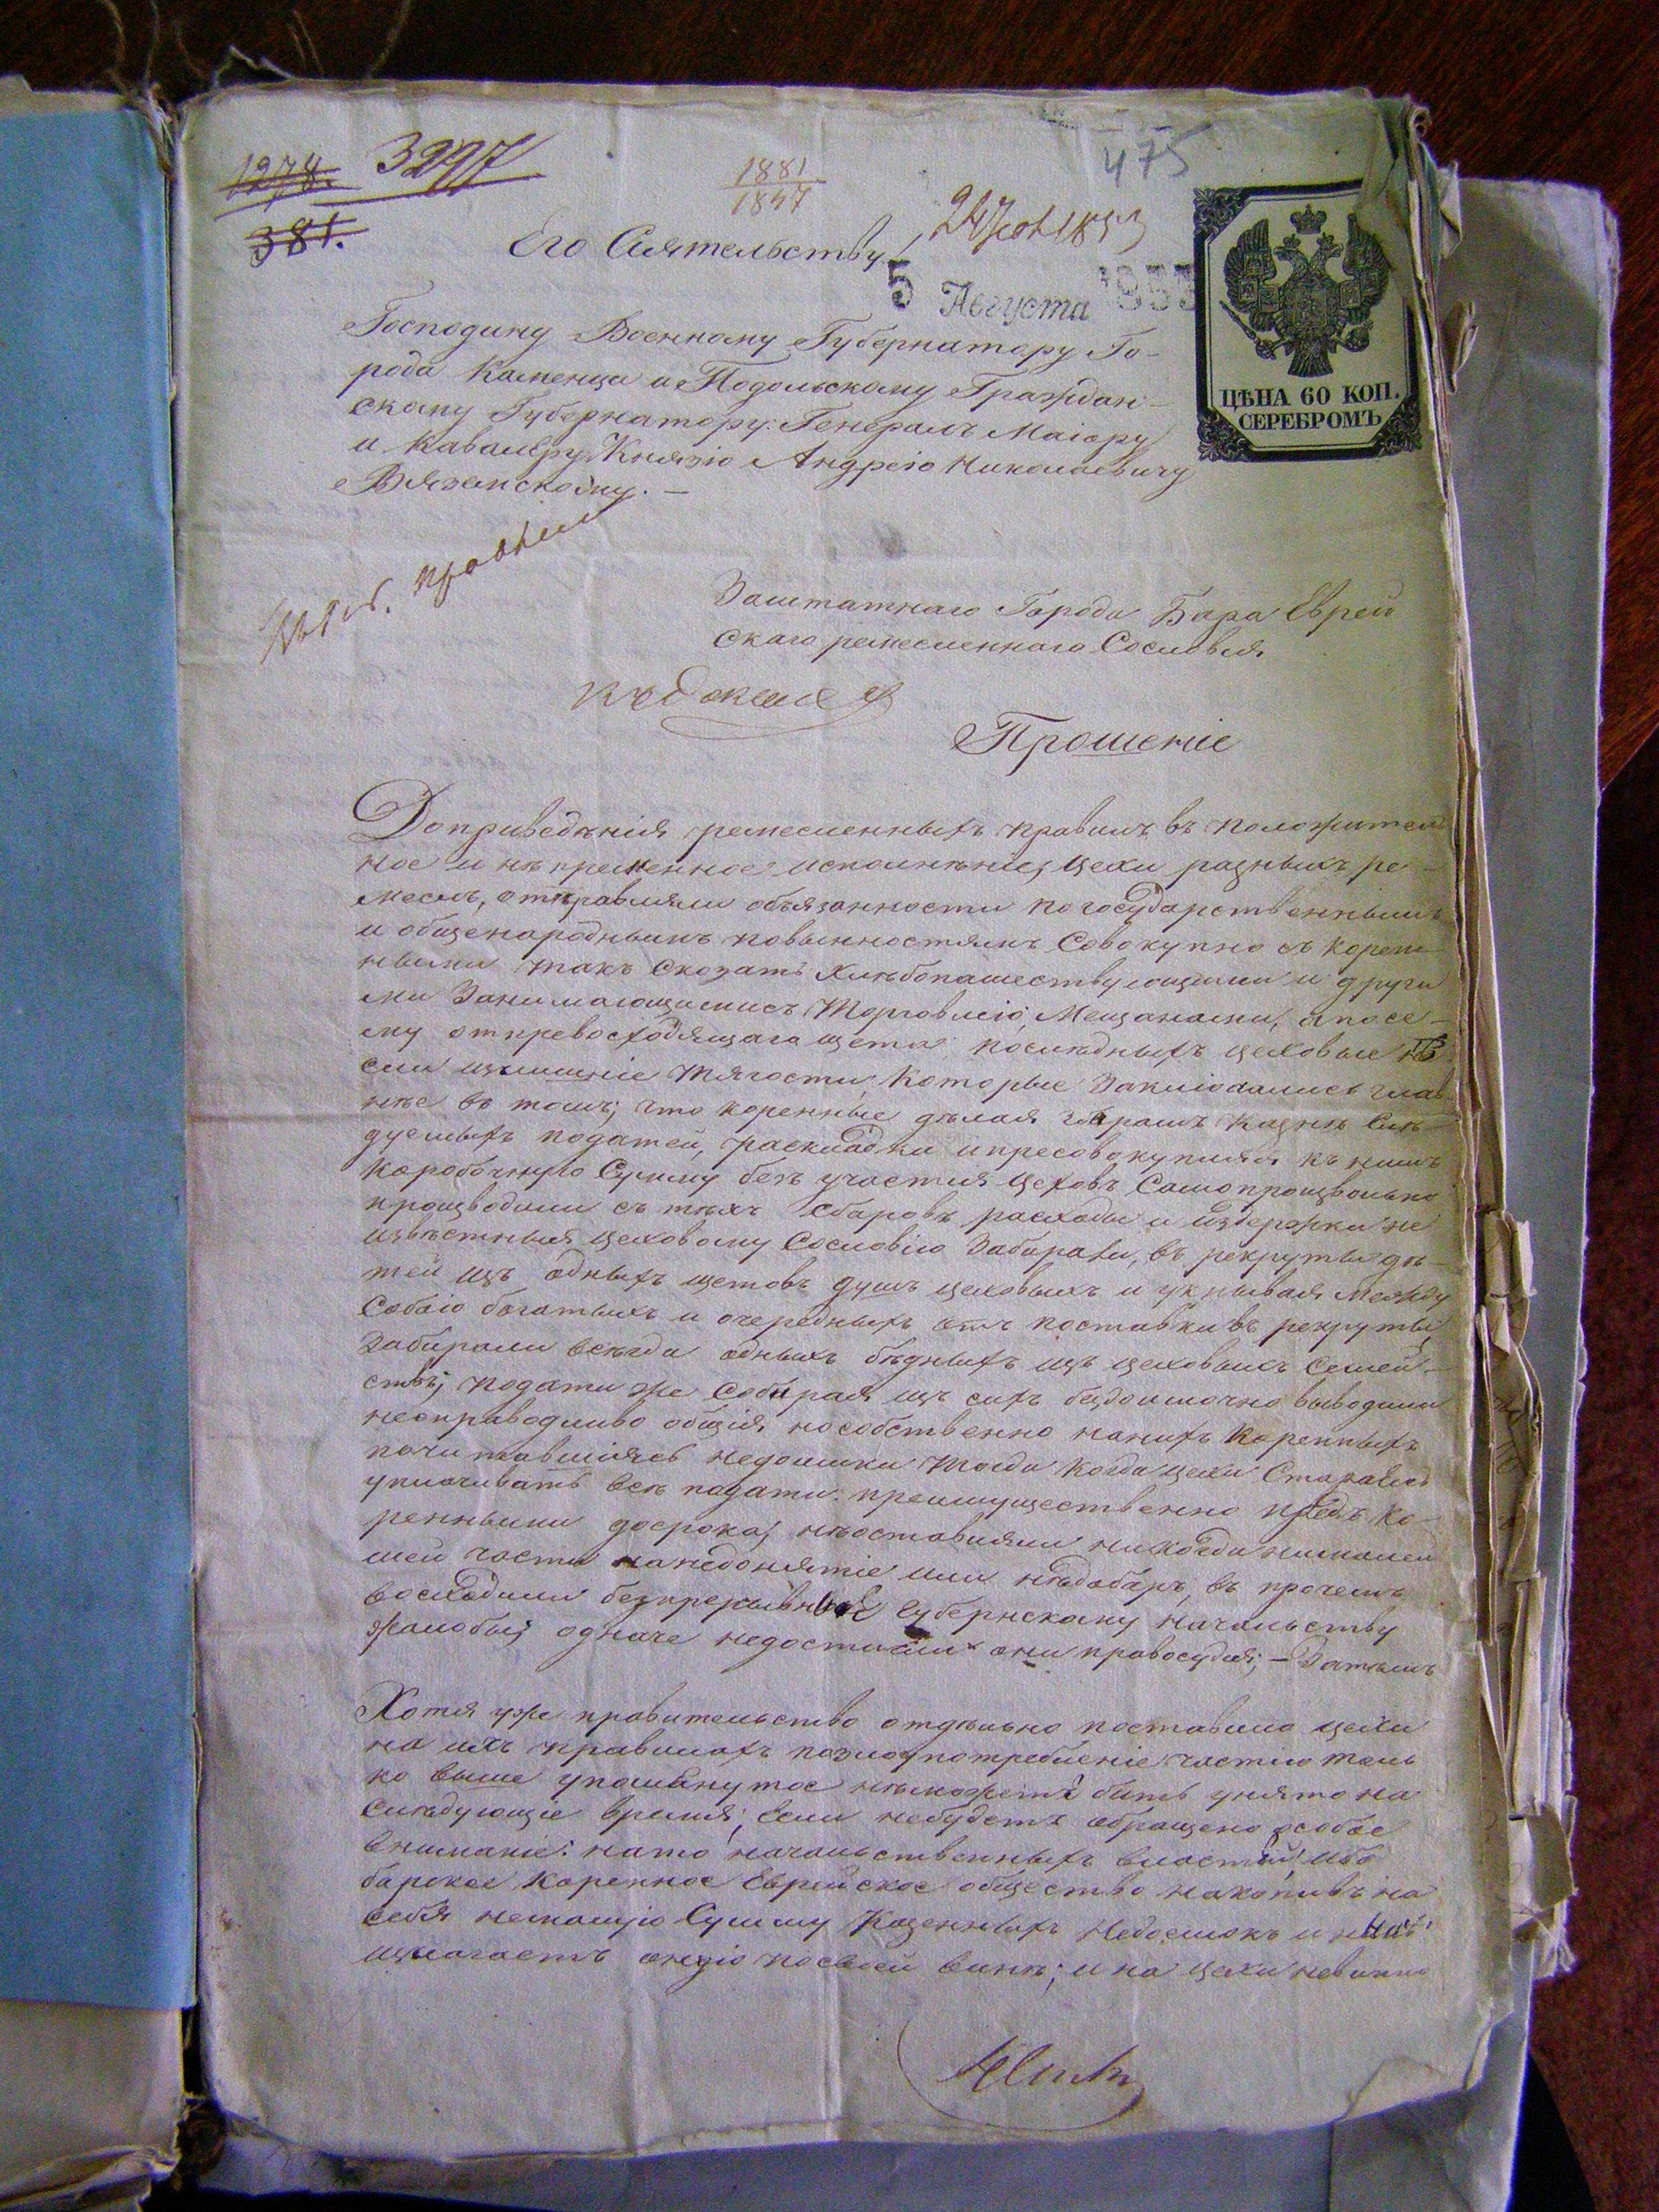 1278. 3297
381.
1881
1847
475
Его Сиятельству
5 Августа 1853
ЦѢНА 60 КОП.
СЕРЕБРОМЪ
Господину Военному Губернатору Го-
рода Каменца и Подольскому Граждан-
скому Губернатору: Генералъ Маіору
и Кавалеру Князю Андрею Николаевичу
Вяземскому. —
Заштатнаго Города Бара Еврей
скаго ремесленнаго Сословія
Прошеніе
До приведѣнія ремесленныхъ правилъ въ положител
ное и нѣпременное исполнѣніе, цехи разныхъ ре-
меслъ, отправляли обязанности по государственнымъ
и общенароднымъ повынностямъ Совокупно съ корен-
ными такъ Сказать Хлѣбопашествующими и други
ми Занимающимись Торговлею, Мещанами, а посе-
му отпревосходящаго щета послѣдныхъ цеховые нѣ
сли излишніе тягости, Которые Заключались глав-
нѣе въ томъ; что коренные дѣлая збрамъ Казнѣ Слѣ-
дуемыхъ податей, раскладки и пресовокупляя къ нимъ
Коробочную Сумму безъ участія Цеховъ Самопроизвольно
производили съ тѣхъ Сборовъ расходы и издержки не
извѣстныя цеховому Сословію Забирали, въ рекруты дѣ-
тей изъ одныхъ щетовъ душъ цеховыхъ и укрывая Между
Собою богатыхъ и очередныхъ отъ поставки въ рекруты
Забирали всегда одныхъ бѣдныхъ изъ цеховыхъ Семей-
ствъ; подати же Собирая изъ сихъ бездоимочно выводили
несправодливо общія, но собственно на нихъ Коренныхъ
почитавшіяся недоимки тогда когда цехи Старались
уплачивать всѣ подати преимущественно предъ Ко-
ренными досрока, нѣоставляли никогда нималей
шей части на недонятіе или нѣдоборъ, въ прочемъ
восходили безпрерывные Губернскому начальству
жалобы; одначе недостигли они правосудія; — Затемъ
Хотя уже правительство отдѣльно поставило цехи
на ихъ правилахъ но злоупотребленіе частію толь
ко выше упомянутое нѣможетъ быть унято на
Слѣдующіе время, Если небудетъ обращено особое
вниманіе на то начальственныхъ властей, ибо
барское Коренное Еврейское общество накопивъ на
себя немалую Сумму Казенныхъ Недоимокъ и
излагаетъ оную по своей винѣ; и на цехи невинно